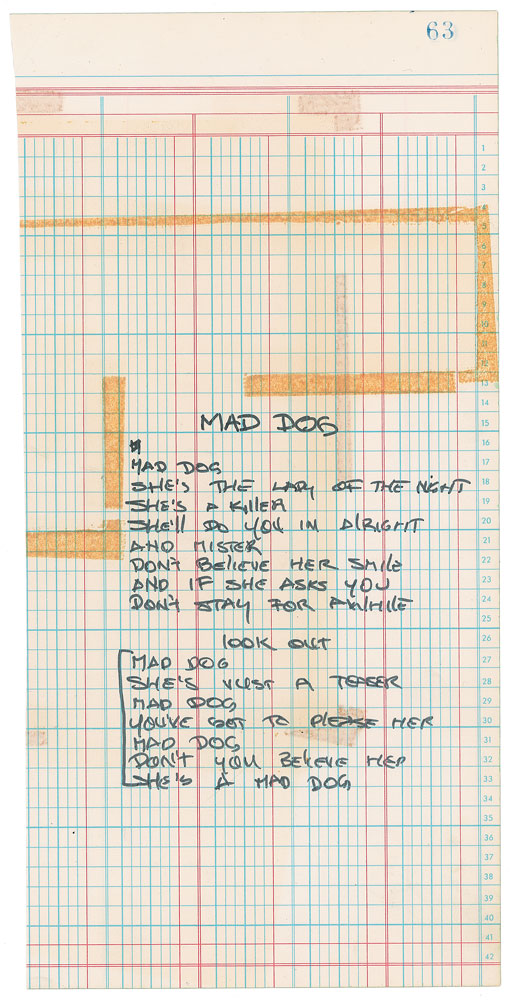 63
1
2
3
4
5
6
7
8
9
10
11
12
13
14
MAD DOG 15
16
MAD DOG 17
SHE'S THE LADY OF THE NIGHT 18
SHE'S A KILLER 19
SHE'LL DO YOU IN ALRIGHT 20
AND MISTER 21
DON'T BELIEVE HER SMILE 22
AND IF SHE ASKS YOU 23
DON'T STAY FOR AWHILE 24
25
LOOK OUT 26
MAD DOG 27
SHE'S JUST A TEASER 28
MAD DOG 29
YOU'VE GOT TO PLEASE HER 30
MAD DOG 31
DON'T YOU BELIEVE HER 32
SHE'S A MAD DOG 33
34
35
36
37
38
39
40
41
42